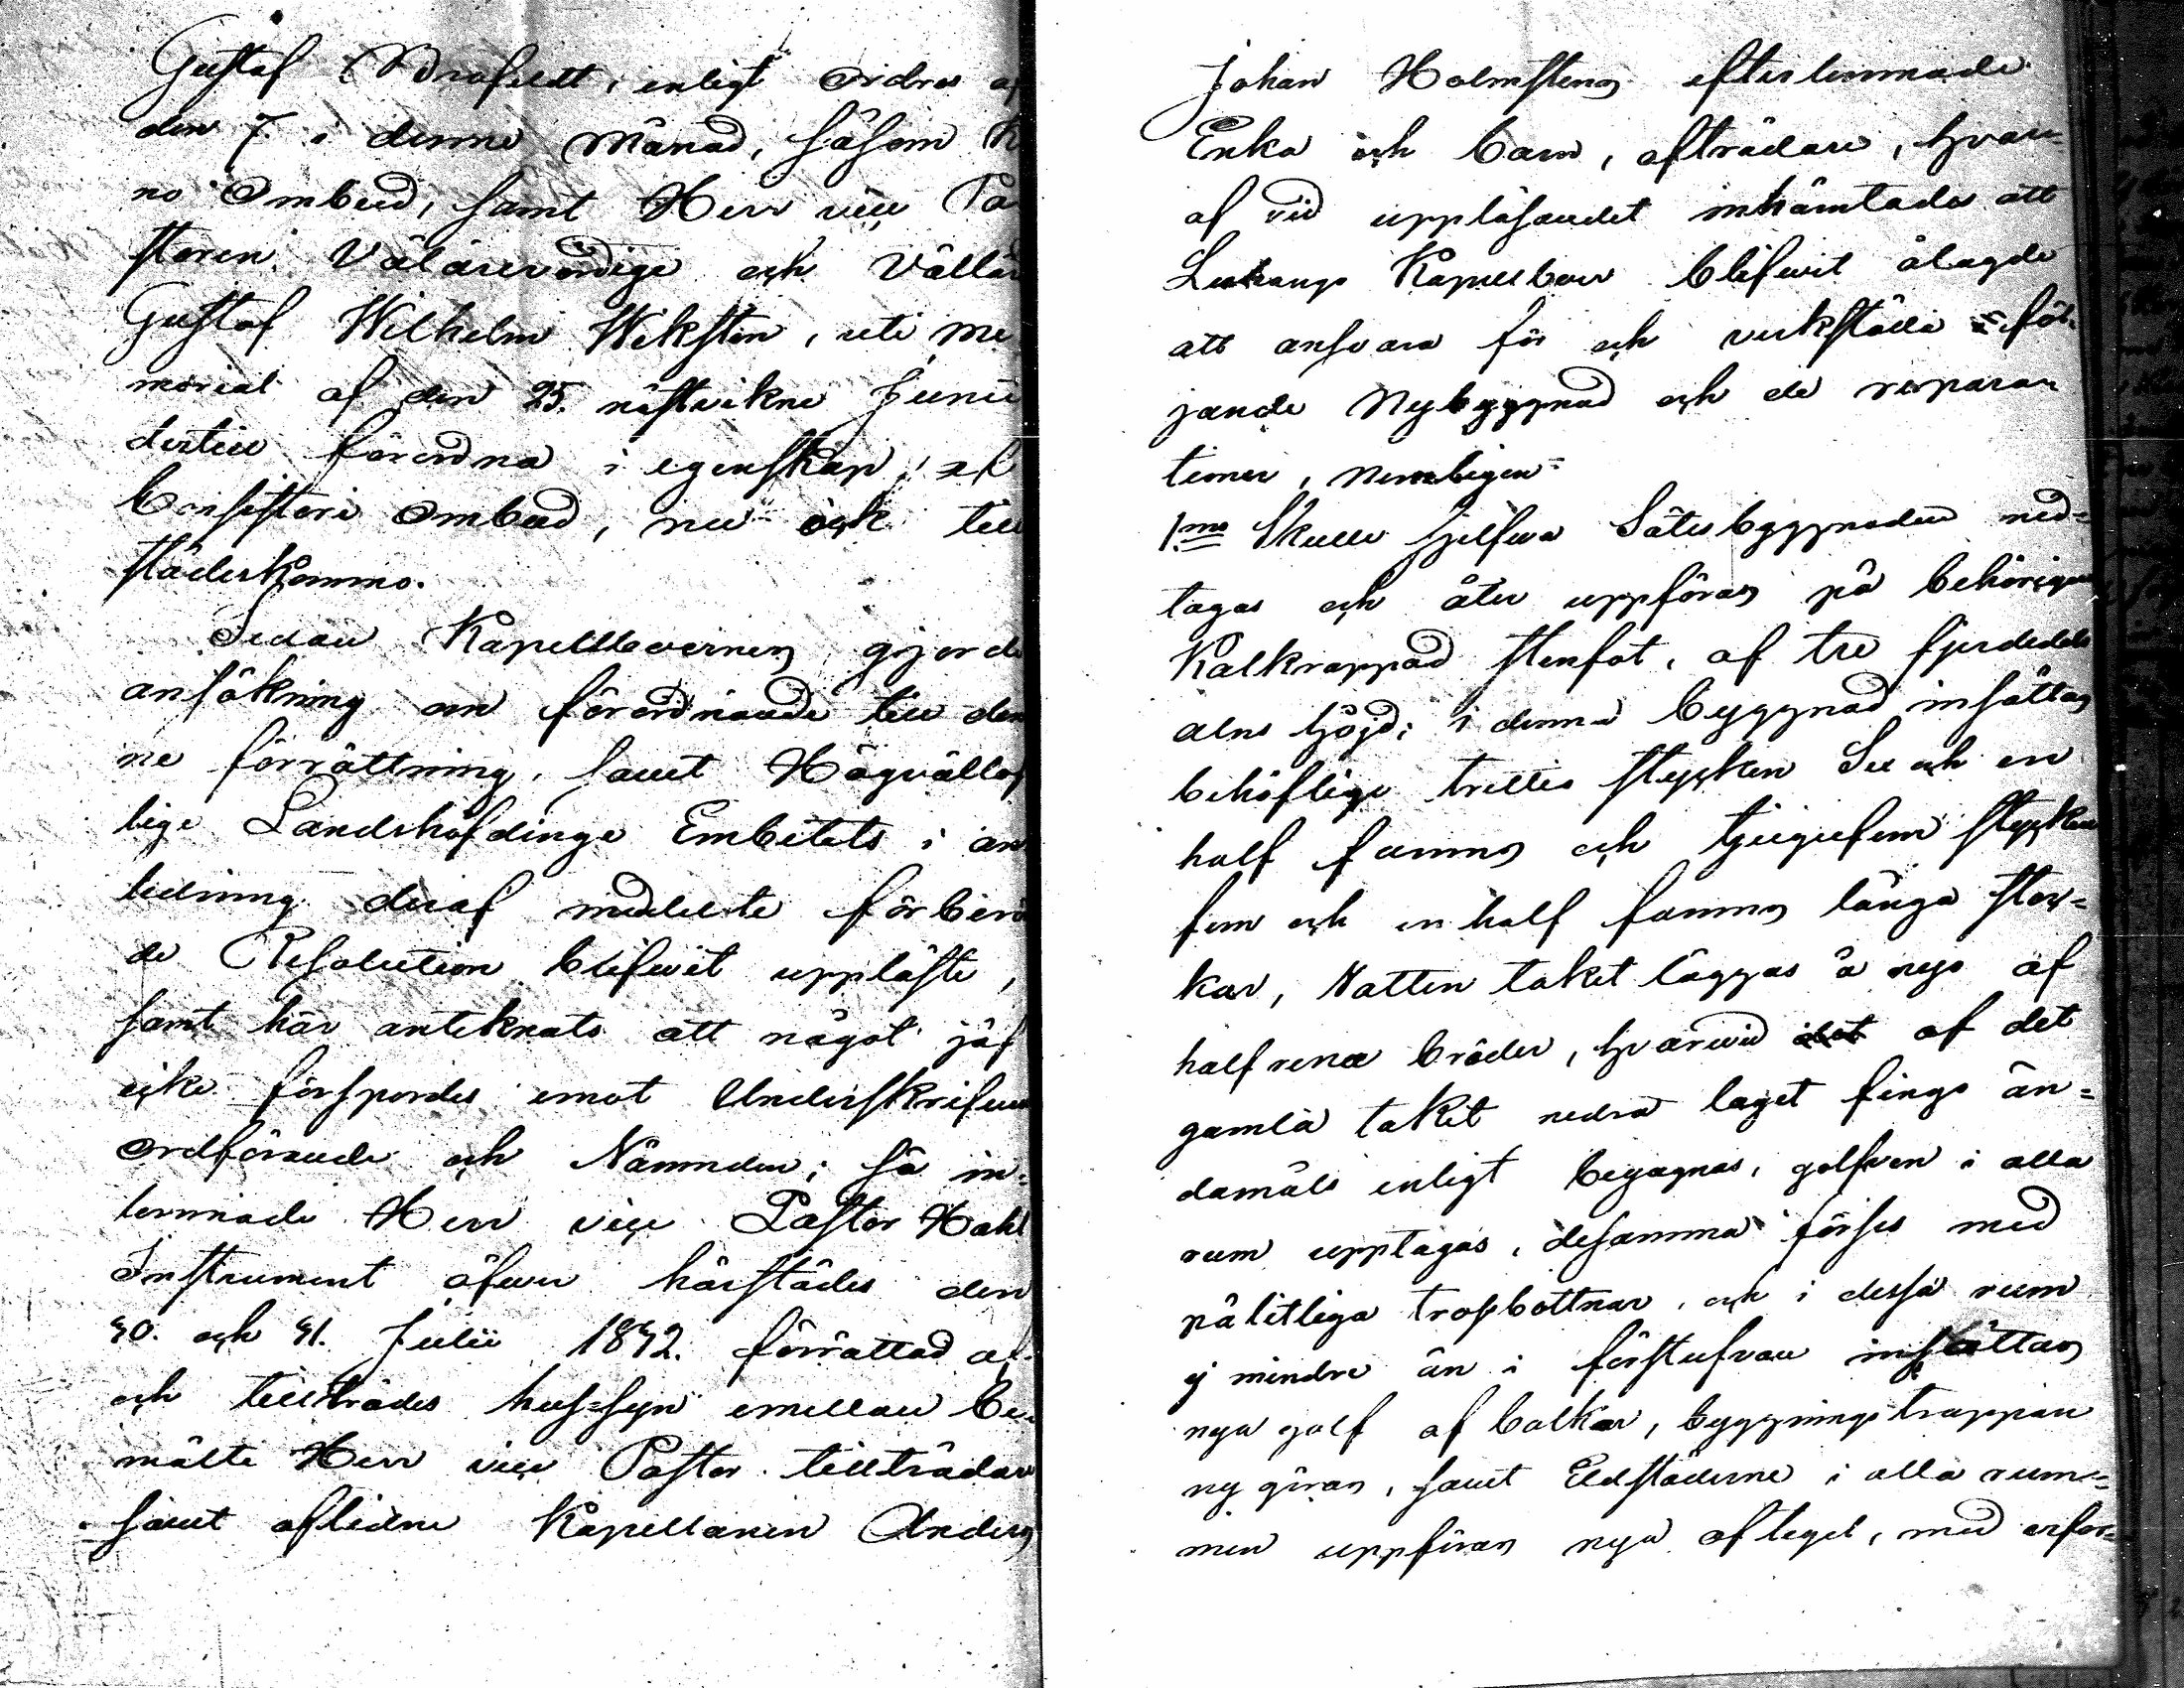 Gustaf enligt Ordres af
den 7. i denne Månad, såsom
no Ombud, samt Herr vice Pa
storen Välärevördige och Vällär
Gustaf Wilhelm Weksten, uti Me
morial af den 25. nästvikne Junii
dertill förordna i egenskap af
Consistorii Ombud, nu ock till
städerkommo.
Sedan Kapellboernes gjorde
ansökning om förordnande till den
ne förrättning, samt Högvällof
lige Landshöfdinge Embetets i an
ledning deraf meddelte förberör
de Resolution blifwit uppläste,
samt här anteknats att något jäf
icke försportes emot Underskrifwen
Ordförande och Nämnden; så in=
lemnade Herr vice Pastor Hahl
Instrument öfwer härstädes den
40. och 41. Julii 1842. förrättad af
och tillträdes hus=syn emellan be
mälte Herr vice Pastor tillträdare
samt aflidne Kapellanen Anders
Johan Holmstens efterlemnade
Enka och barn, afträdare, hvar=
af vid uppläsandet inhämtades att
Kapellboer blifwit ålagde
att answara för och verkställa föl=
jande Nybyggnad och de repara=
tioner, nemligen:
1:mo Skulle sjelfwa Sätesbyggnaden ned=
tagas och åter uppföras på behörigen
Kalkrappad stenfot, af tre fjerdedels
alns höjd; i denna byggnad insättas
behöflige trettio stycken Sju och en
half famns och tjugufem stycken
fem och en half famns långa stoc=
kar, Vatten taket läggas å nyo af
halfrena bräder, hvarwid af det
gamla taket nedra laget fings än=
damåls enligt begagnas, golfwen i alla
rum upptagas, desamma förses med
pålitliga trossbottnar, och i dessa rum
ej mindre än i förstufvan insättas
nya golf af balkar, byggnings trappan
ny göras, samt Eldstäderne i alla rum=
men uppföras nya af tegel, med erfor=